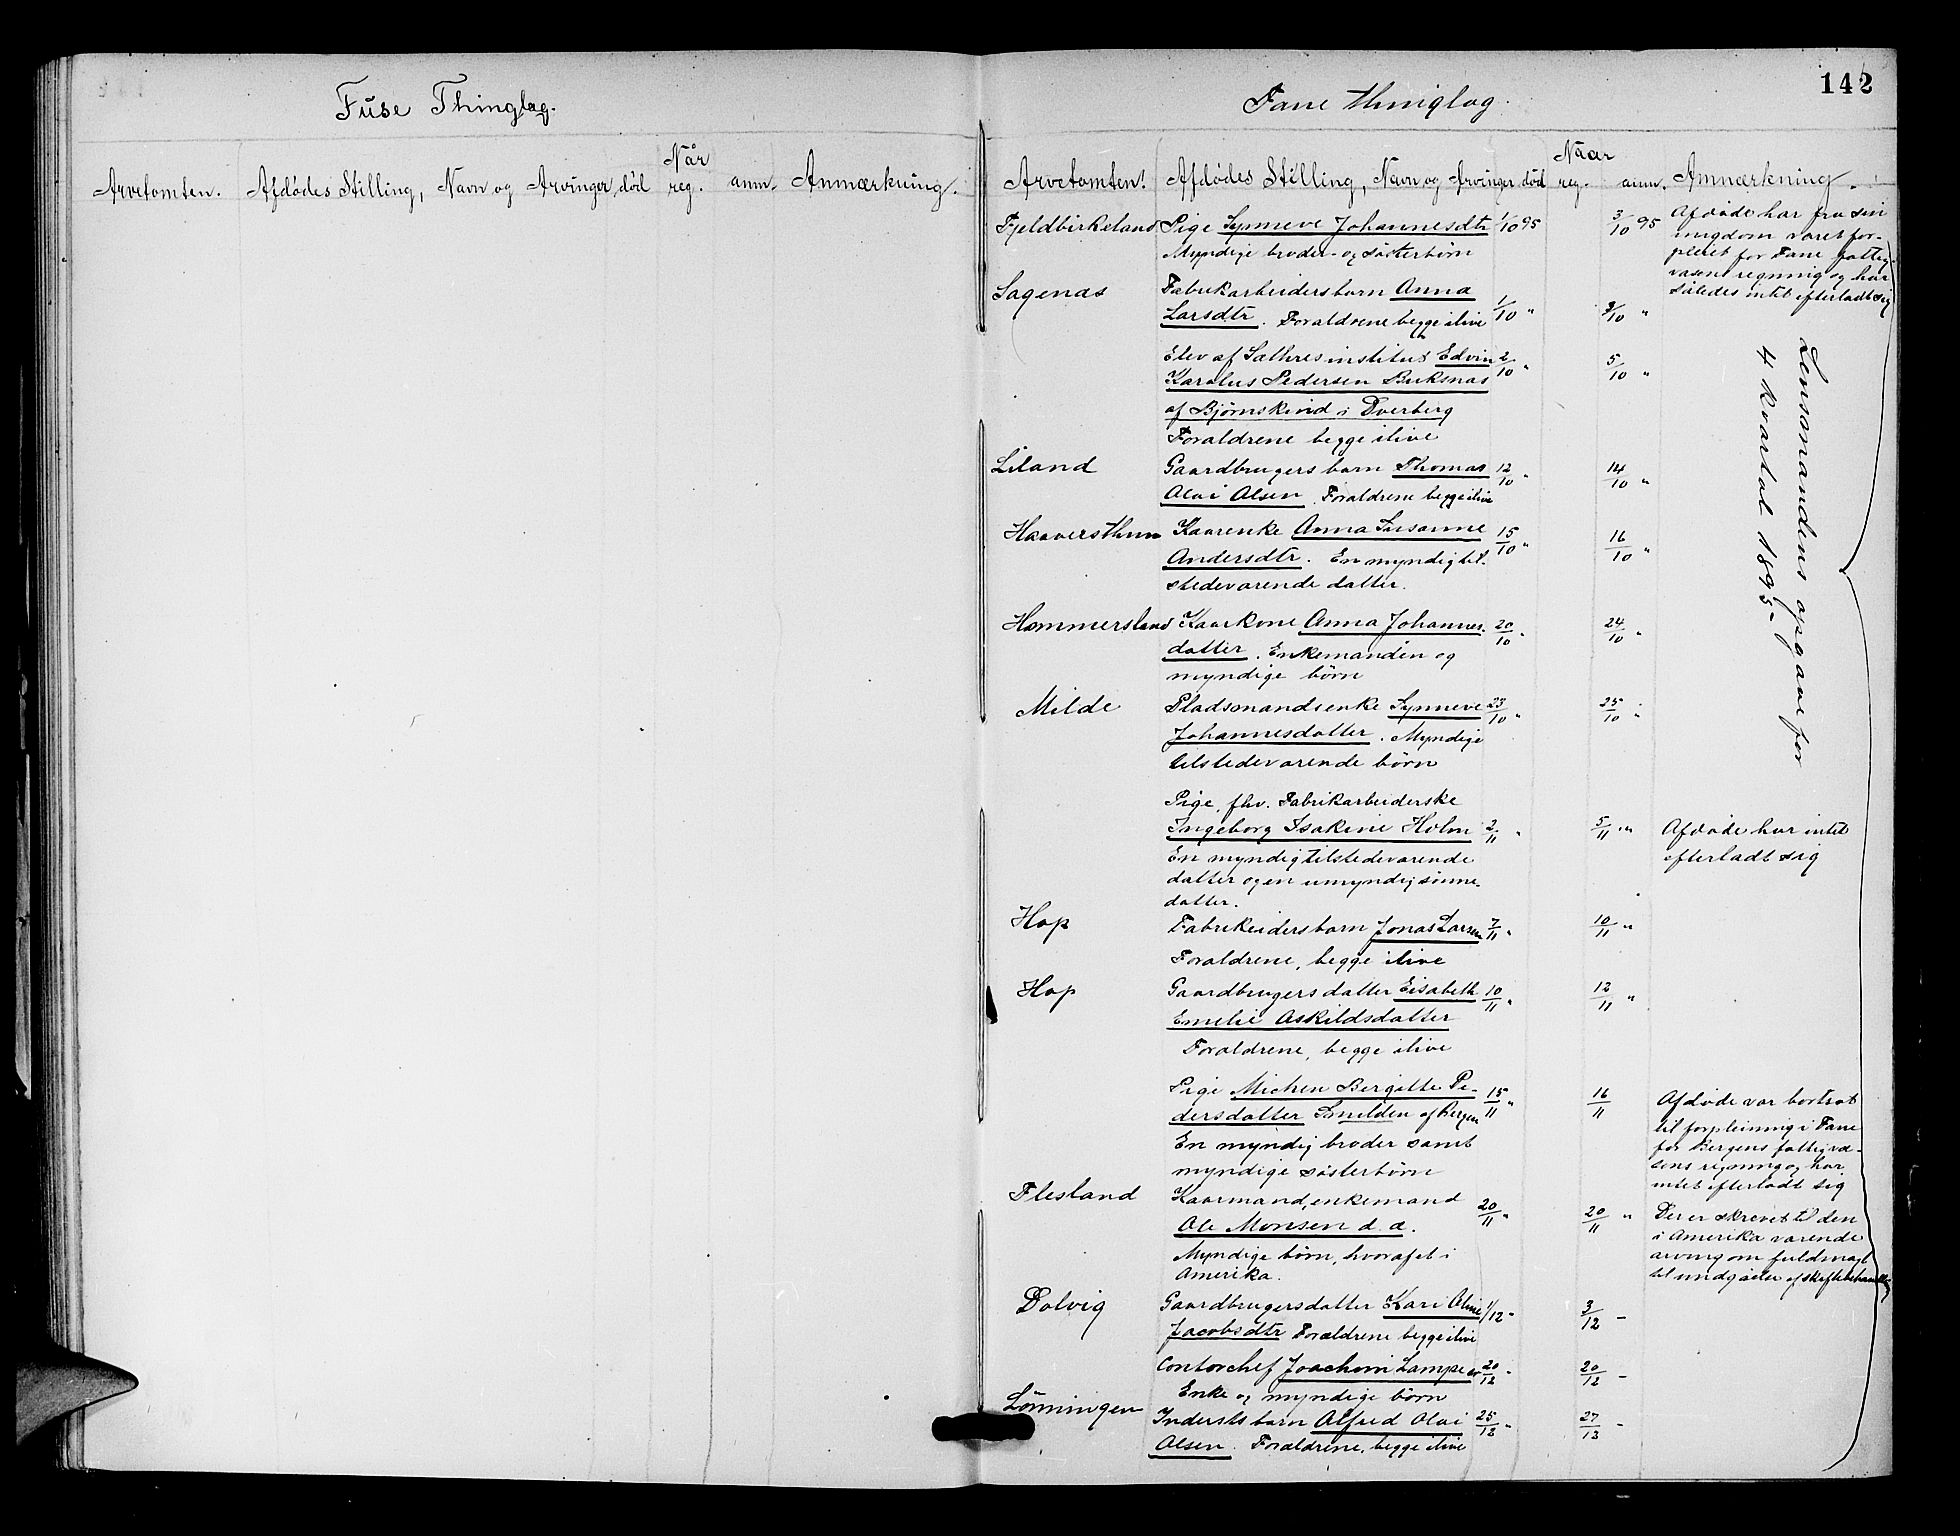 Fuse Thinglag.
Arvetomten. Afdødes Stilling, Navn og Arvinger død Når reg. anm. Anmærkning.
142
Fane thinglag.
Arvetomten. Afdødes Stilling, Navn og Arvinger død Naar reg. anm. Anmærkning.
Fjeldbirkeland Pige Synneve Johannesdtr 1/10 95 3/10 95 Afdøde har fra sin
Myndige broder- og søsterbørn ungdom været for-
pleiet for Fane fattig-
væsens regning og har
således intet efterladt sig
Sagenæs Fabrikarbeidersbarn Anna
Larsdtr. Forældrene begge ilive 1/10 " 3/10 "
Elev af Sælhres institut Edvin 2/10 " 5/10 "
Karolus Pedersen Buksnæs
af Bjørnskind i Dverberg
Forældrene begge ilive
Lensmandens opgave for
4 kvartal 1895-
Liland Gaardbrugers barn Thomas 12/10 " 14/10 "
Olai Olsen. Forældrene begge ilive
Haaversthun Kaarenke Anna Susanne 15/10 " 16/10 "
Andersdtr. En myndig til-
stedeværende datter.
Hammersland Kaarkone Anna Johannes- 20/10 " 24/10 "
datter. Enkemanden og
myndige børn
Milde Pladsmandsenke Synneve 23/10 " 25/10 "
Johannesdatter. Myndige
tilstedeværende børn
Pige, fhv. Fabrikarbeiderske
Ingeborg Isakine Holm 2/11 " 5/11 " Afdøde har intet
En myndig tilstedeværende efterladt sig
datter og en umyndig sønne-
datter.
Hop Fabrikeidersbarn Jonas Larsen 7/11 " 10/11 "
Forældrene, begge ilive
Hop Gaardbrugers datter Eisabeth 10/11 " 12/11 "
Emelie Askildsdatter
Forældrene, begge ilive
Pige Michen Bergitte Pe- 15/11 " 16/11 Afdøde var bortsat
dersdatter Smilden af Bergen til forpleining i Fane
En myndig broder samt for Bergens fattigvæ-
myndige søsterbørn sens regning og har
intet efterladt sig
Flesland Kaarmand, enkemand
Ole Monsen d. æ. 20/11 " 20/11 " Der er skrevet til den
Myndige børn, hvoraf et i i Amerika værende
Amerika. arving om fuldmagt
til undgåelse af skiftebehandling
Dolvig Gaardbrugersdatter Kari Oline 1/12 - 3/12 -
Jacobsdtr Forældrene begge ilive
Contorchef Joachim Lampe sr 20/12 - 20/12 -
Enke og myndige børn
Lønningen Inderstsbarn Alfred Olai 25/12 " 27/12 -
Olsen. Forældrene, begge ilive